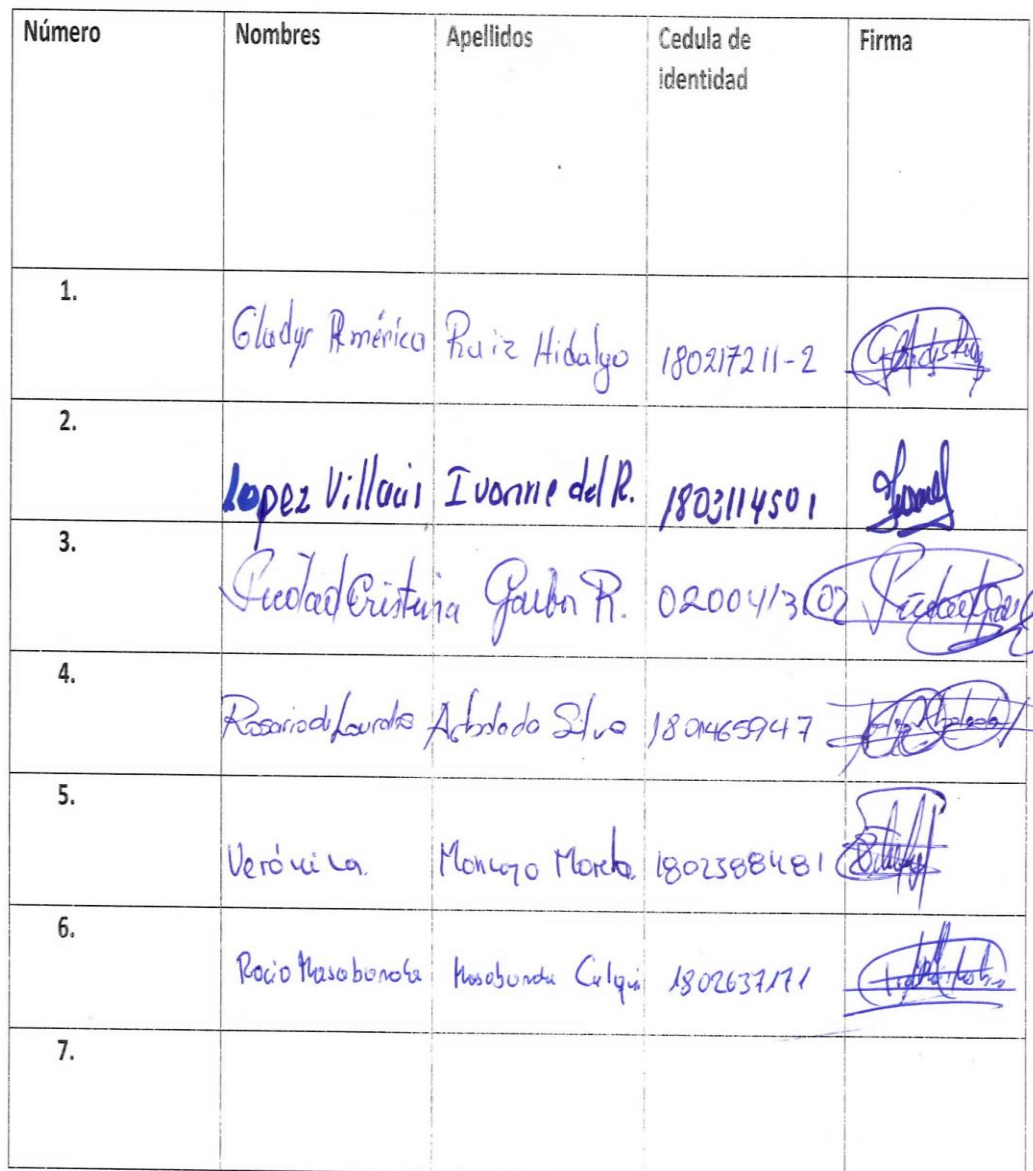 Número Nombres Apellidos Cedula de identidad Firma
1. Gladys América Ruiz Hidalgo 180217211-2
2. Lopez Villacis Ivonne del R. 1803114501
3. Piedad Cristina Gaibor R.
4. Rosario de Lourdes Silva 1801465947
5. Verónica. Moncayo 1802388481
6. Rocio Masabanda Masabanda Culqui 1802637171
7.